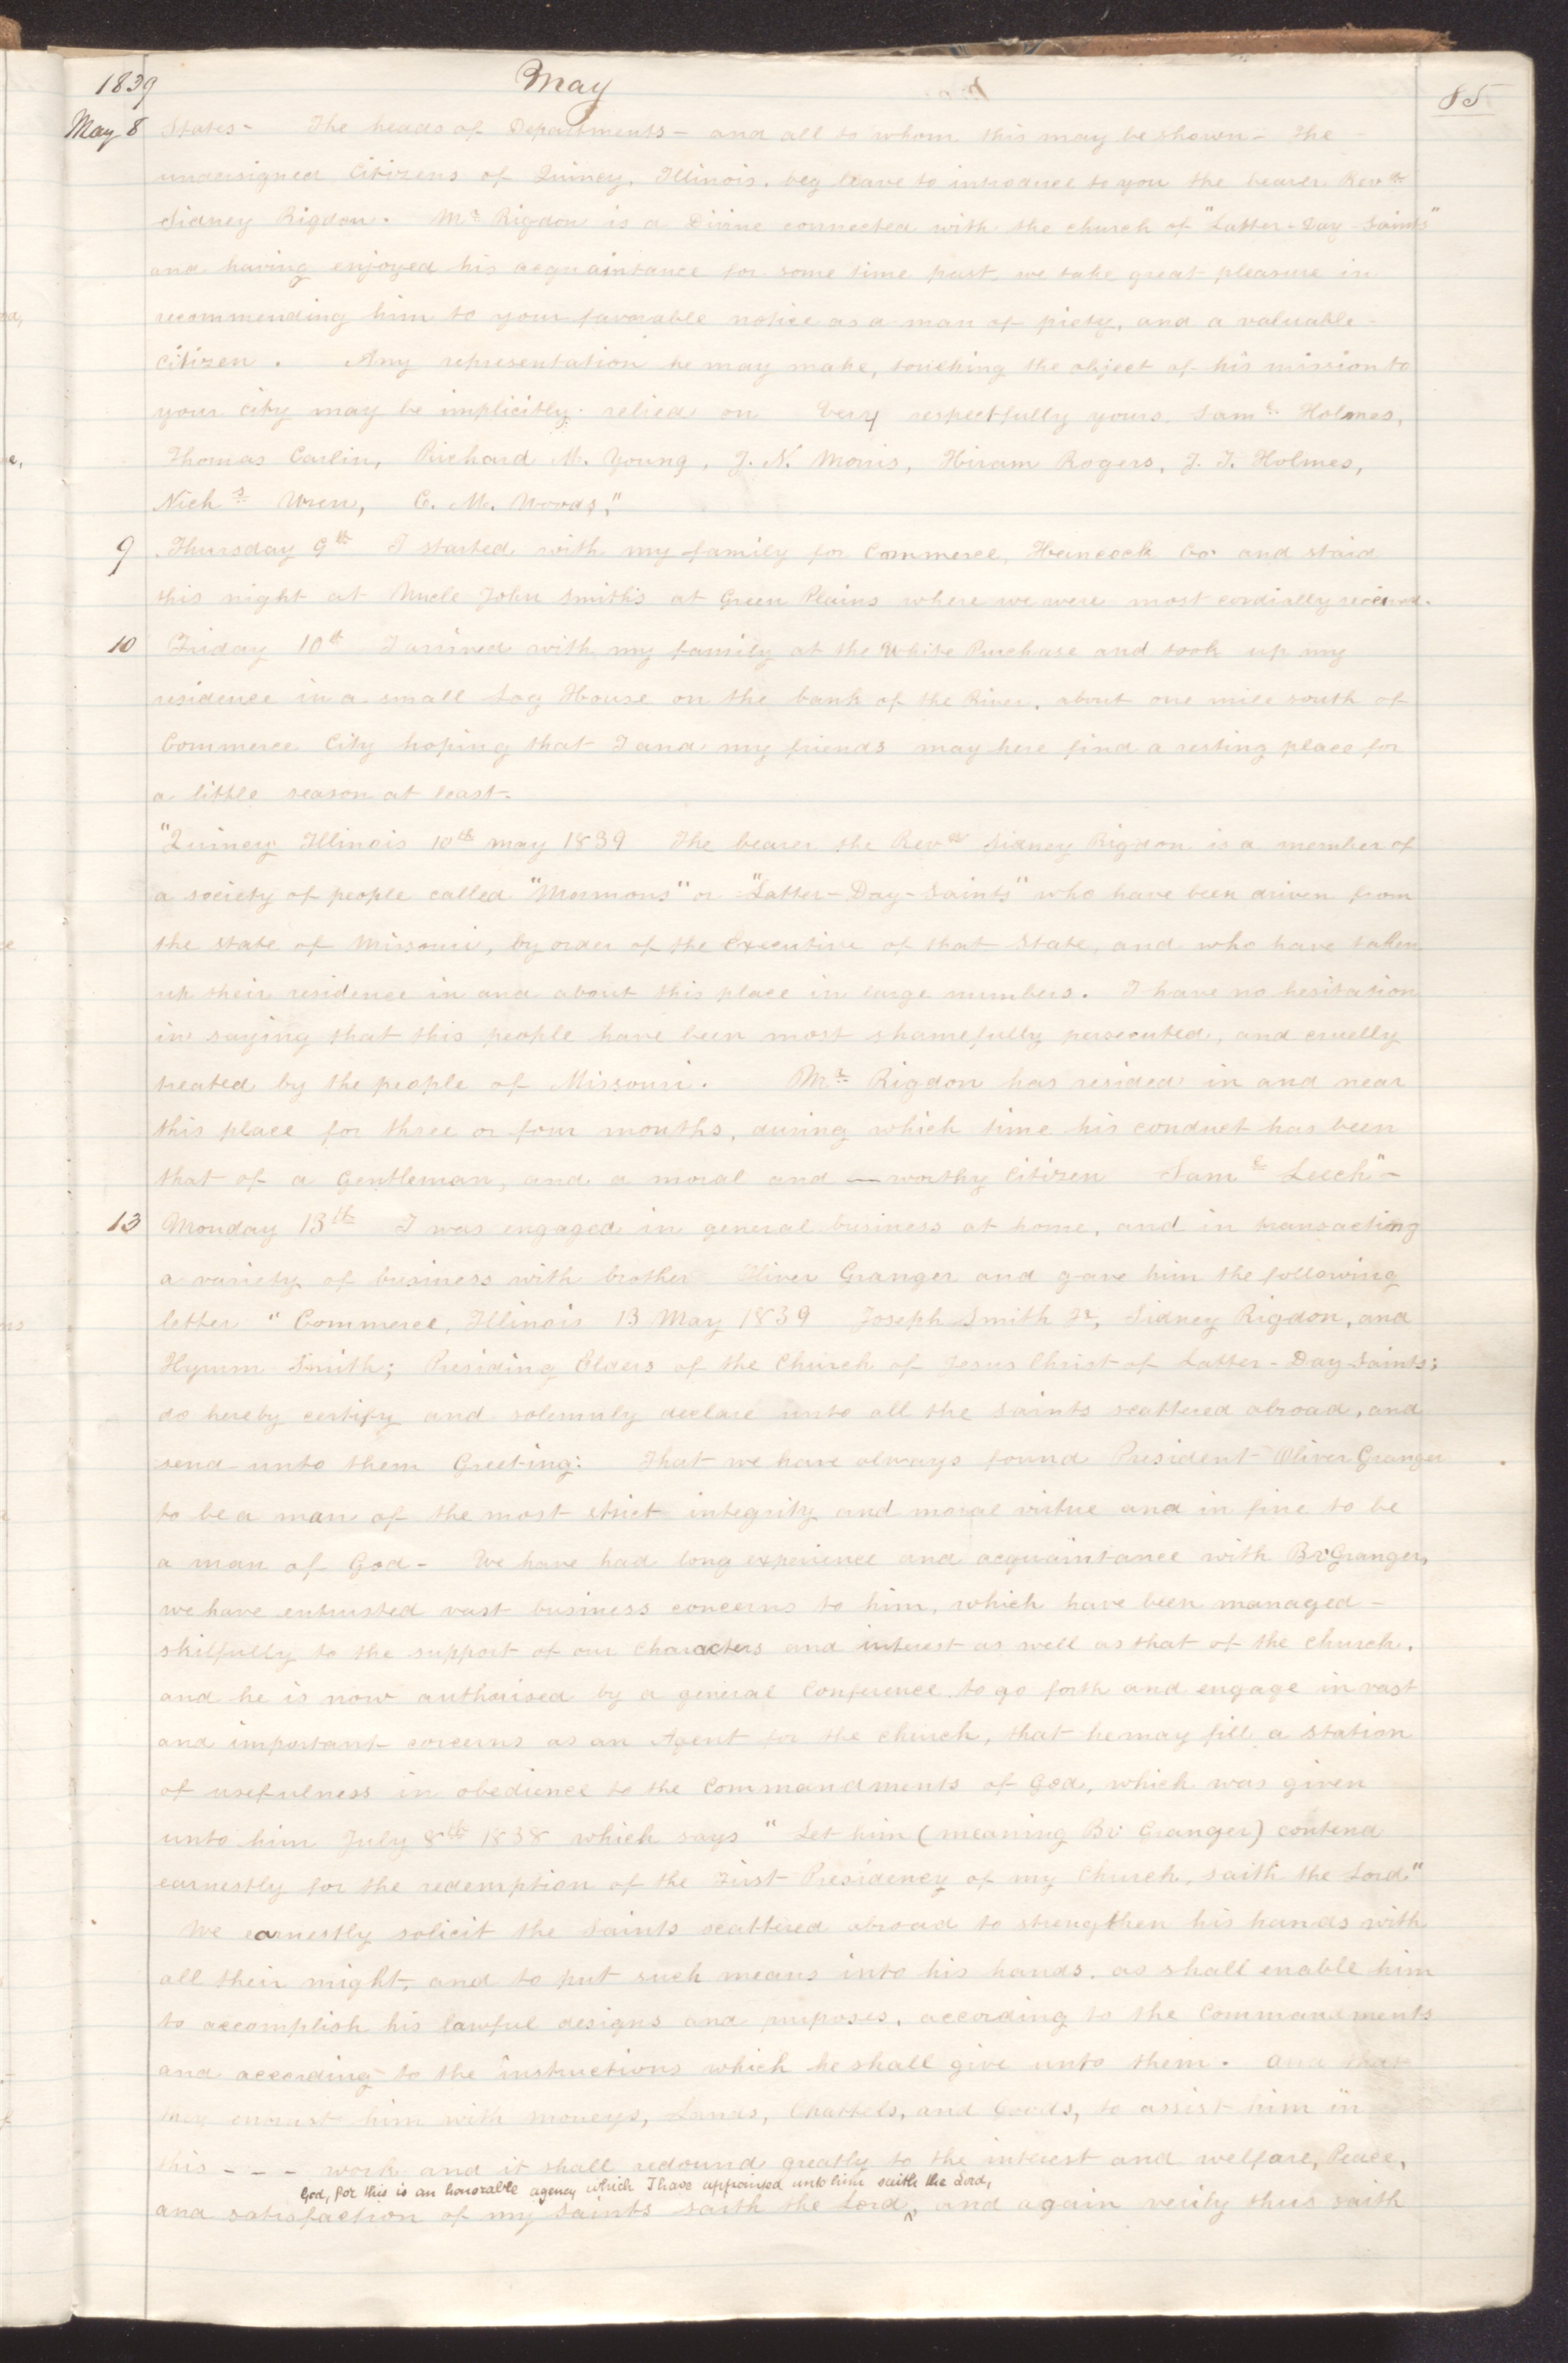 1839 May 85
May 8 States - The heads of Departments - and all to whom this may be shown - The -
undersigned Citizens of Quincy, Illinois, beg leave to introduce to you the bearer Revd.
Sidney Rigdon. Mr. Rigdon is a Divine connected with the church of "Latter-Day Saints"
and having enjoyed his acquaintance for some time past, we take great pleasure in
recommending him to your favorable notice as a man of piety, and a valuable -
citizen. Any representation he may make, touching the object of his mission to
your city may be implicitly relied on Very respectfully yours. Saml. Holmes,
Thomas Carlin, Richard M. Young, J. N. Morris, Hiram Rogers, J. T. Holmes,
Nichs. Wren, C. M. Woods,"
9 Thursday 9th I started with my family for Commerce, Hancock Co. and staid
this night at Uncle John Smith's at Green Plains where we were most cordially received.
10 Friday 10th I arrived with my family at the White Purchase and took up my
residence in a small Log House on the bank of the River, about one mile south of
Commerce City hoping that I and my friends may here find a resting place for
a little season at least.
"Quincy Illinois 10th may 1839 The bearer the Revd. Sidney Rigdon is a member of
a society of people called "Mormons" or "Latter-Day-Saints" who have been driven from
the state of Missouri, by order of the Executive of that State, and who have taken
up their residence in and about this place in large numbers. I have no hesitation
in saying that this people have been most shamefully persecuted, and cruelly
treated by the people of Missouri. Mr. Rigdon has resided in and near
this place for three or four months, during which time his conduct has been
that of a gentleman, and a moral and — worthy citizen Saml. Leech" -
13 Monday 13th I was engaged in general business at home, and in transacting
a variety of business with brother Oliver Granger and gave him the following
letter "Commerce, Illinois 13 May 1839 Joseph Smith Jr, Sidney Rigdon, and
Hyrum Smith; Presiding Elders of the Church of Jesus Christ of Latter-Day-Saints;
do hereby certify and solemnly declare unto all the saints scattered abroad, and
send unto them Greeting: That we have always found President Oliver Granger
to be a man of the most strict integrity and moral virtue and in fine to be
a man of God - We have had long experience and acquaintance with Br. Granger,
we have entrusted vast business concerns to him, which have been managed -
skilfully to the support of our characters and interest as well as that of the church.
and he is now authorised by a general Conference to go forth and engage in vast
and important concerns as an Agent for the church, that he may fill a station
of usefulness in obedience to the commandments of God, which was given
unto him July 8th 1838 which says "Let him (meaning Br. Granger) contend
earnestly for the redemption of the First Presidency of my Church, saith the Lord"
We earnestly solicit the Saints scattered abroad to strengthen his hands with
all their might, and to put such means into his hands, as shall enable him
to accomplish his lawful designs and purposes, according to the commandments
and according to the instructions which he shall give unto them. and that
they entrust him with moneys, Lands, Chattels, and Goods, to assist him in
this - - - work and it shall redound greatly to the interest and welfare, Peace,
God, for this is an honorable agency which I have appointed unto him saith the Lord,
and satisfaction of my Saints saith the Lord ^, and again verily thus saith